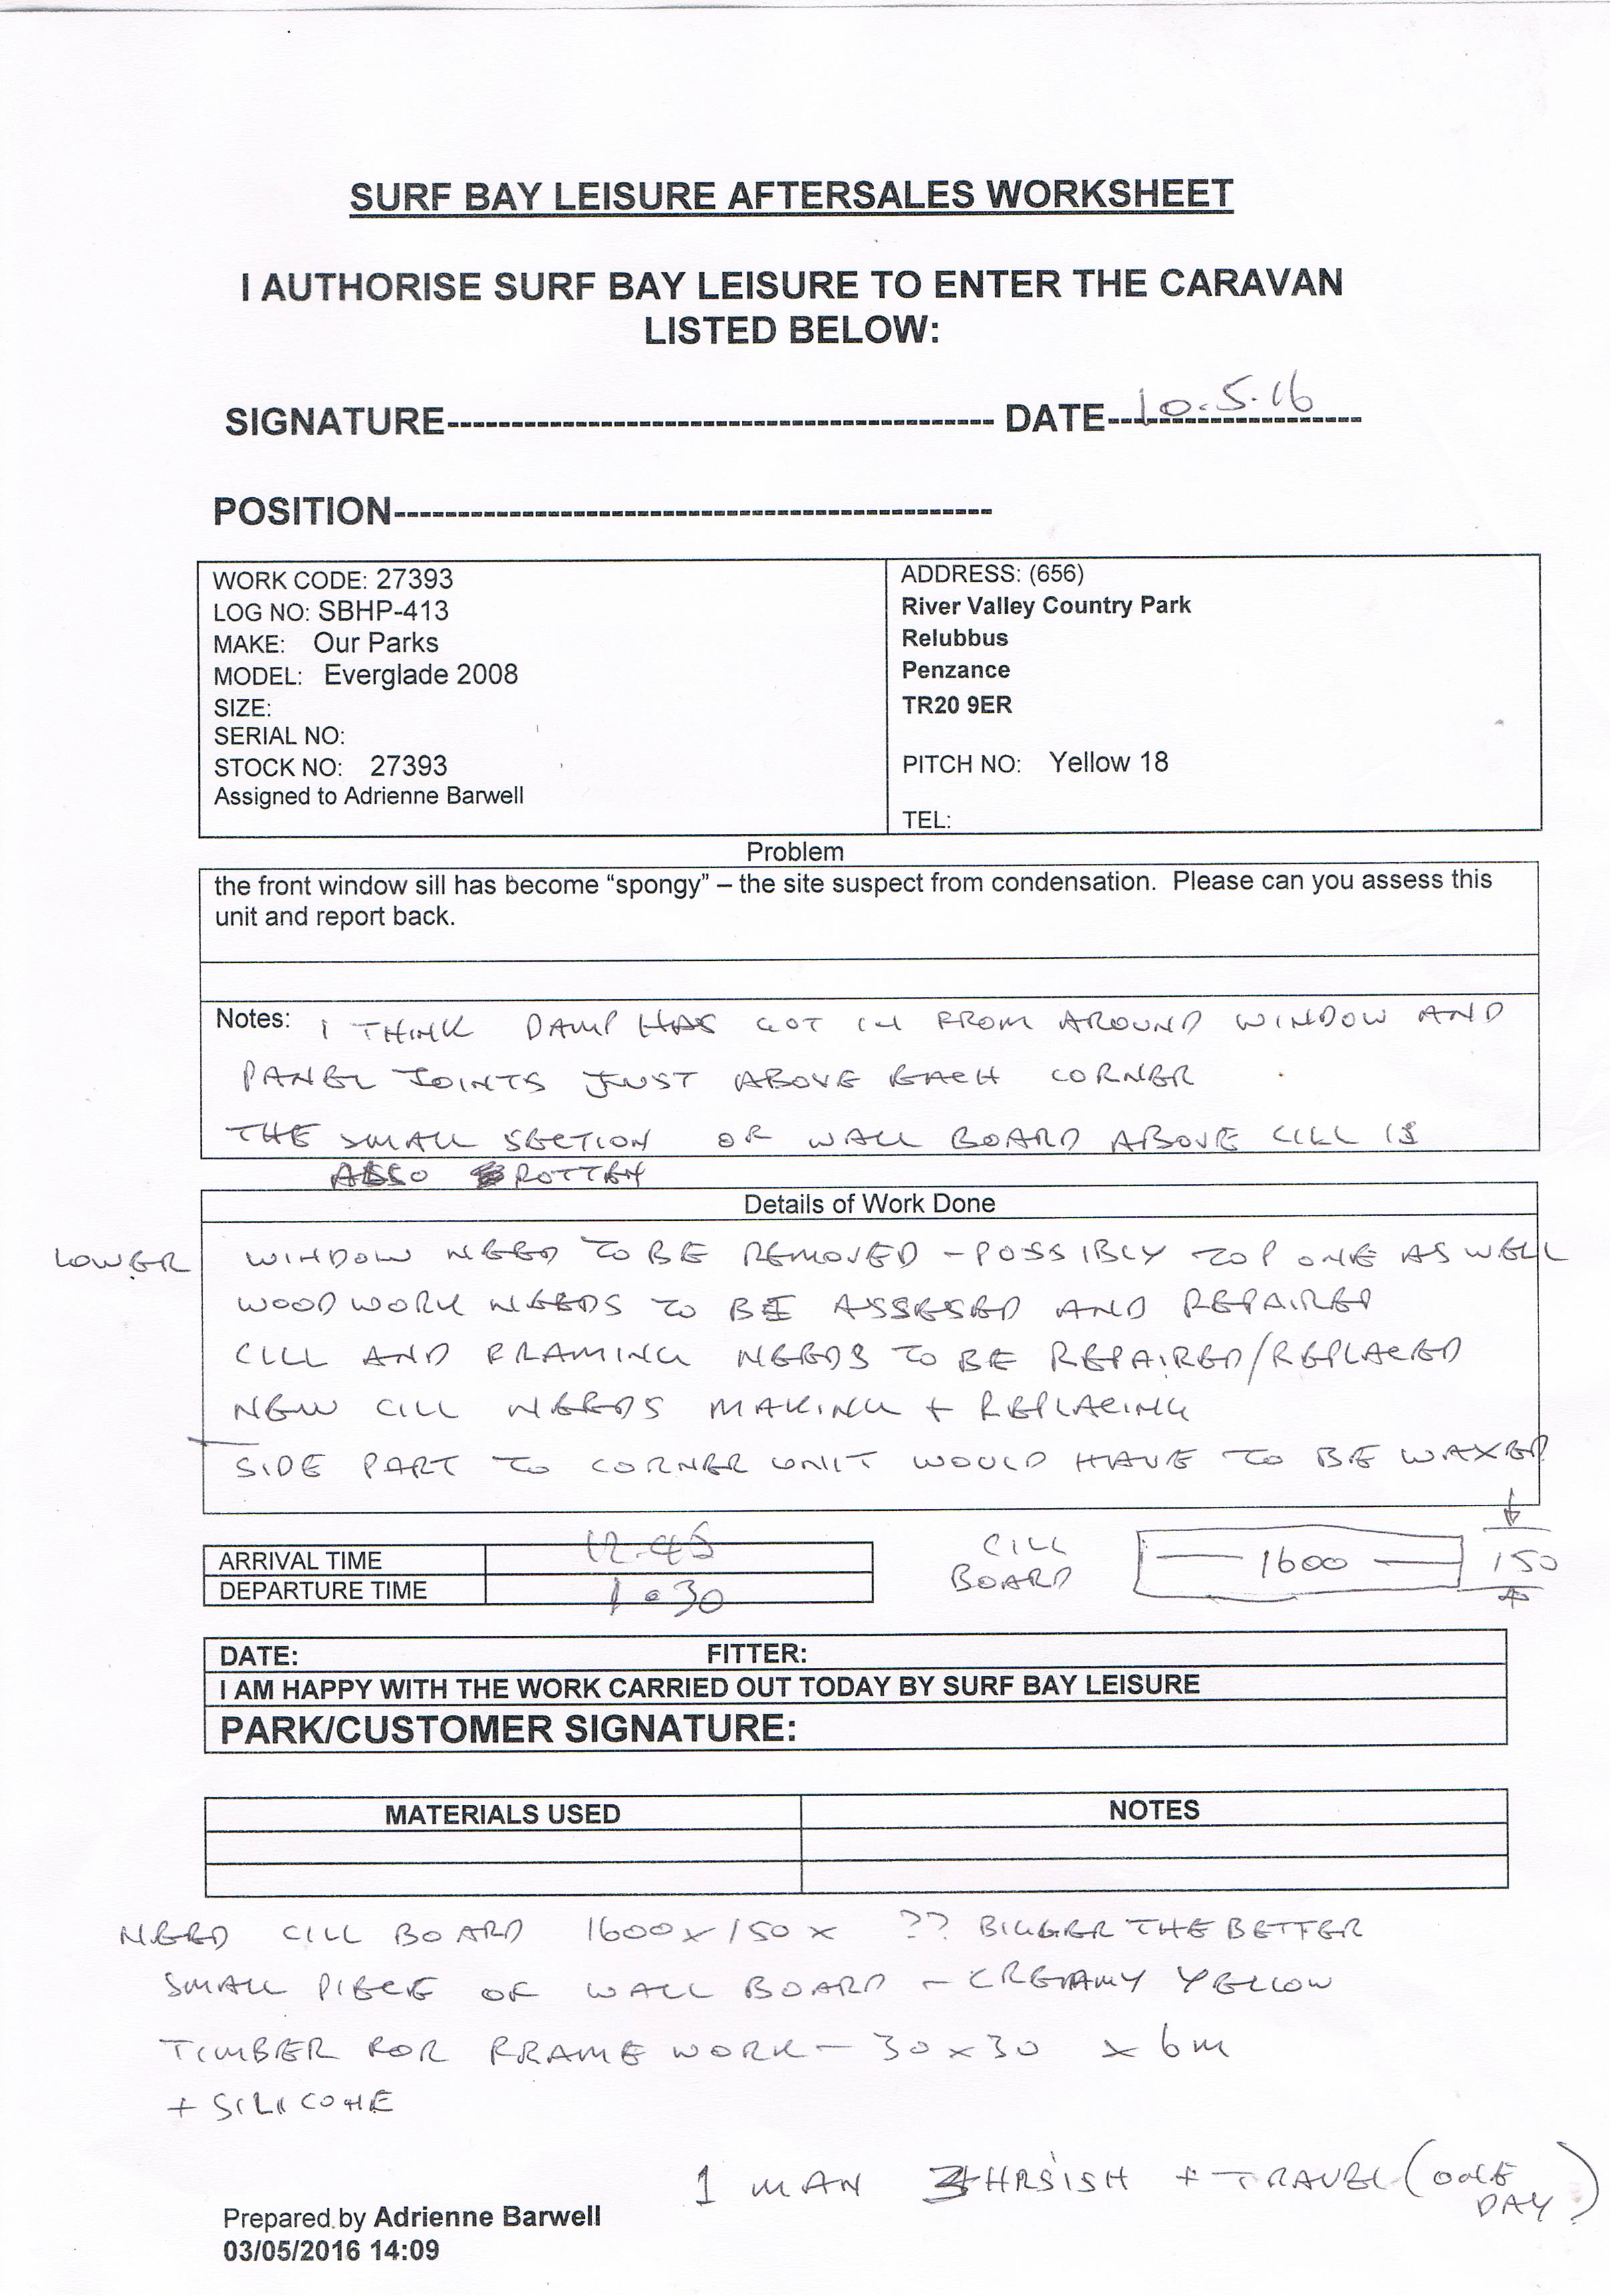 SURF BAY LEISURE AFTERSALES WORKSHEET
I AUTHORISE SURF BAY LEISURE TO ENTER THE CARAVAN
LISTED BELOW:
SIGNATURE------------------------------------------ DATE-------------------- 10.5.16
POSITION----------------------------------------------
WORK CODE: 27393
LOG NO: SBHP-413
MAKE: Our Parks
MODEL: Everglade 2008
SIZE:
SERIAL NO:
STOCK NO: 27393
Assigned to Adrienne Barwell
ADDRESS: (656)
River Valley Country Park
Relubbus
Penzance
TR20 9ER
PITCH NO: Yellow 18
TEL:
Problem
the front window sill has become “spongy” – the site suspect from condensation. Please can you assess this
unit and report back.
Notes: I THINK DAMP HAS GOT IN FROM AROUND WINDOW AND
PANEL JOINTS JUST ABOVE EACH CORNER
THE SMALL SECTION OF WALL BOARD ABOVE CILL IS
ALSO ROTTEN
Details of Work Done
LOWER WINDOW NEED TO BE REMOVED - POSSIBLY TOP ONE AS WELL
WOODWORK NEEDS TO BE ASSESED AND REPAIRED
CILL AND FRAMING NEEDS TO BE REPAIRED/REPLACED
NEW CILL NEEDS MAKING + REPLACING
SIDE PART TO CORNER UNIT WOULD HAVE TO BE WAXED
ARRIVAL TIME 12.45
DEPARTURE TIME 1.30
CILL
BOARD
1600
150
DATE: FITTER:
I AM HAPPY WITH THE WORK CARRIED OUT TODAY BY SURF BAY LEISURE
PARK/CUSTOMER SIGNATURE:
MATERIALS USED NOTES
NEED CILL BOARD 1600 x 150 x ?? BIGGER THE BETTER
SMALL PIECE OF WALL BOARD - CREAMY YELLOW
TIMBER FOR FRAME WORK - 30 x 30 x 6m
+ SILICONE
1 MAN HRSISH + TRAVEL (ONE
DAY)
Prepared by Adrienne Barwell
03/05/2016 14:09